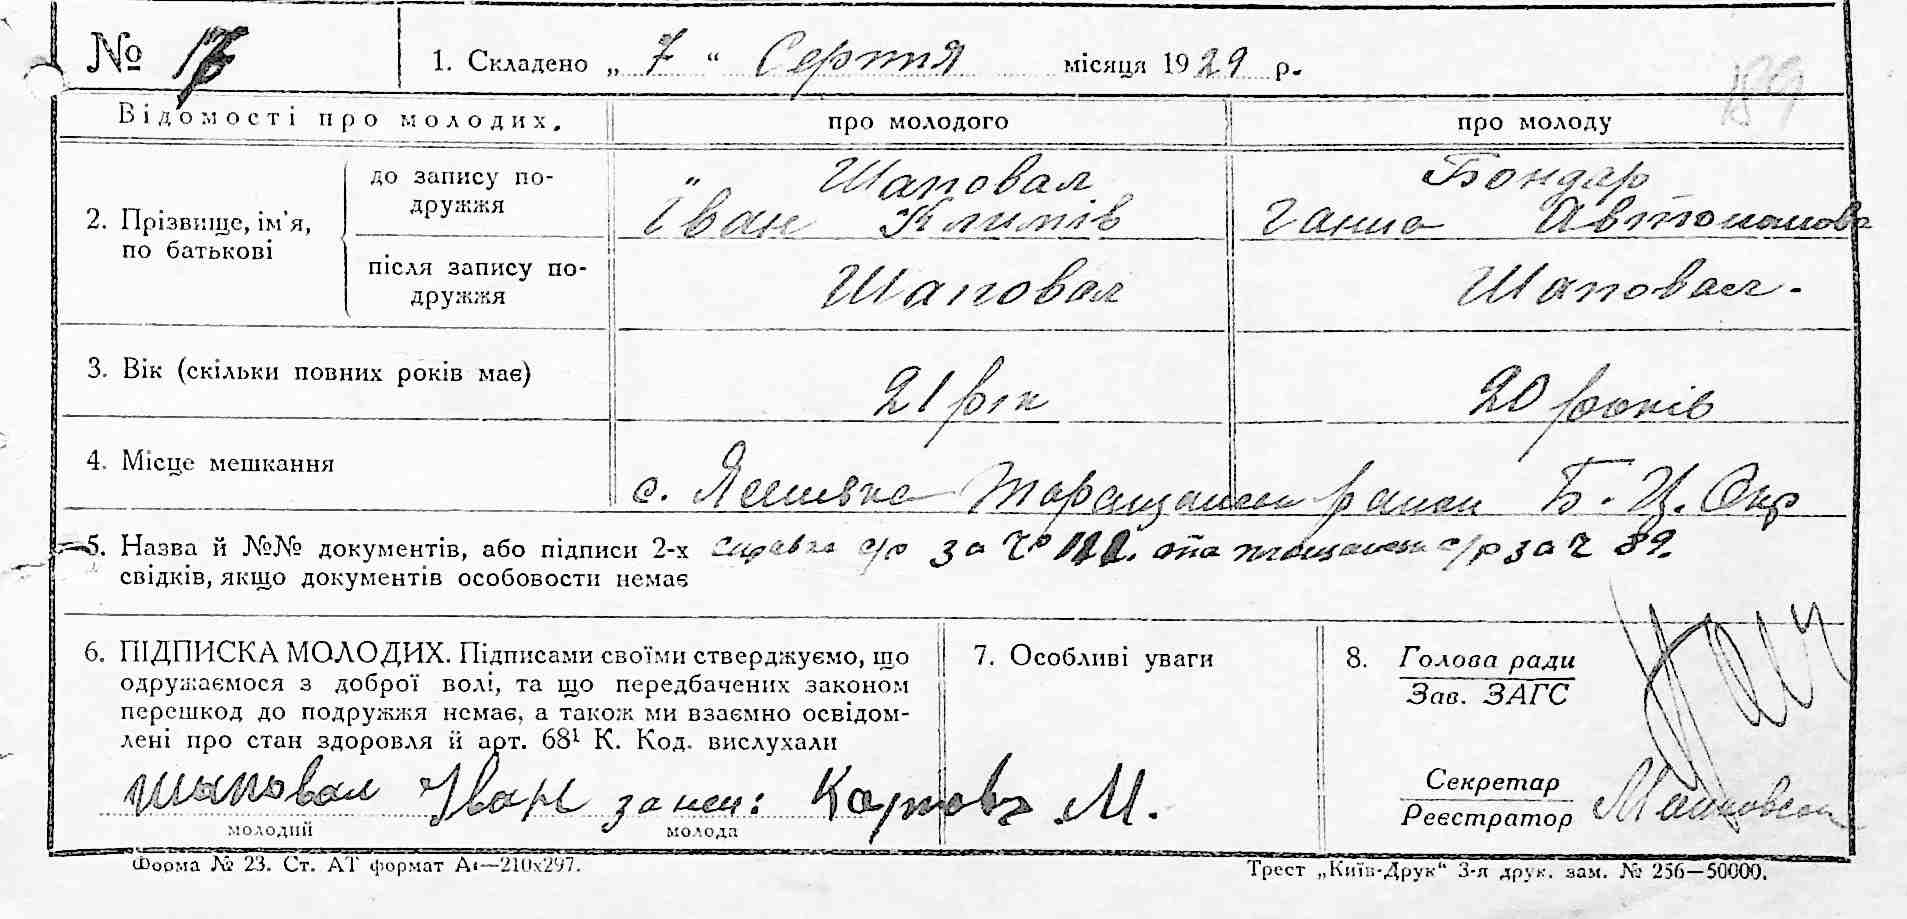 № 17
1. Складено „ 7 “ Серпня місяця 1929 р.
189
Відомості про молодих. про молодого про молоду
2. Прізвище, ім'я, по батькові
до запису по-
дружжя
Шаповал
Іван Климів
Бондар
Ганна Автономова
після запису по-
дружжя
Шаповал
Шаповал.
3. Вік (скільки повних років має) 21 рік 20 років
4. Місце мешкання
с. Яшивка Таращанськ район Б. Ц. Окр
5. Назва й №№ документів, або підписи 2-х справка с/р за ч° 122. та с/р за ч 89.
свідків, якщо документів особовости немає
6. ПІДПИСКА МОЛОДИХ. Підписами своїми стверджуємо, що
одружаємося з доброї волі, та що передбачених законом
перешкод до подружжя немає, а також ми взаємно освідом-
лені про стан здоровля й арт. 68¹ К. Код. вислухали
Шаповал Іван за неи: Карпова М.
молодий молода
7. Особливі уваги
8. Голова ради
Зав. ЗАГС
Секретар
Реєстратор
Форма № 23. Ст. АТ формат А₄—210х297.
Трест „Київ-Друк“ 3-я друк. зам. № 256—50000.